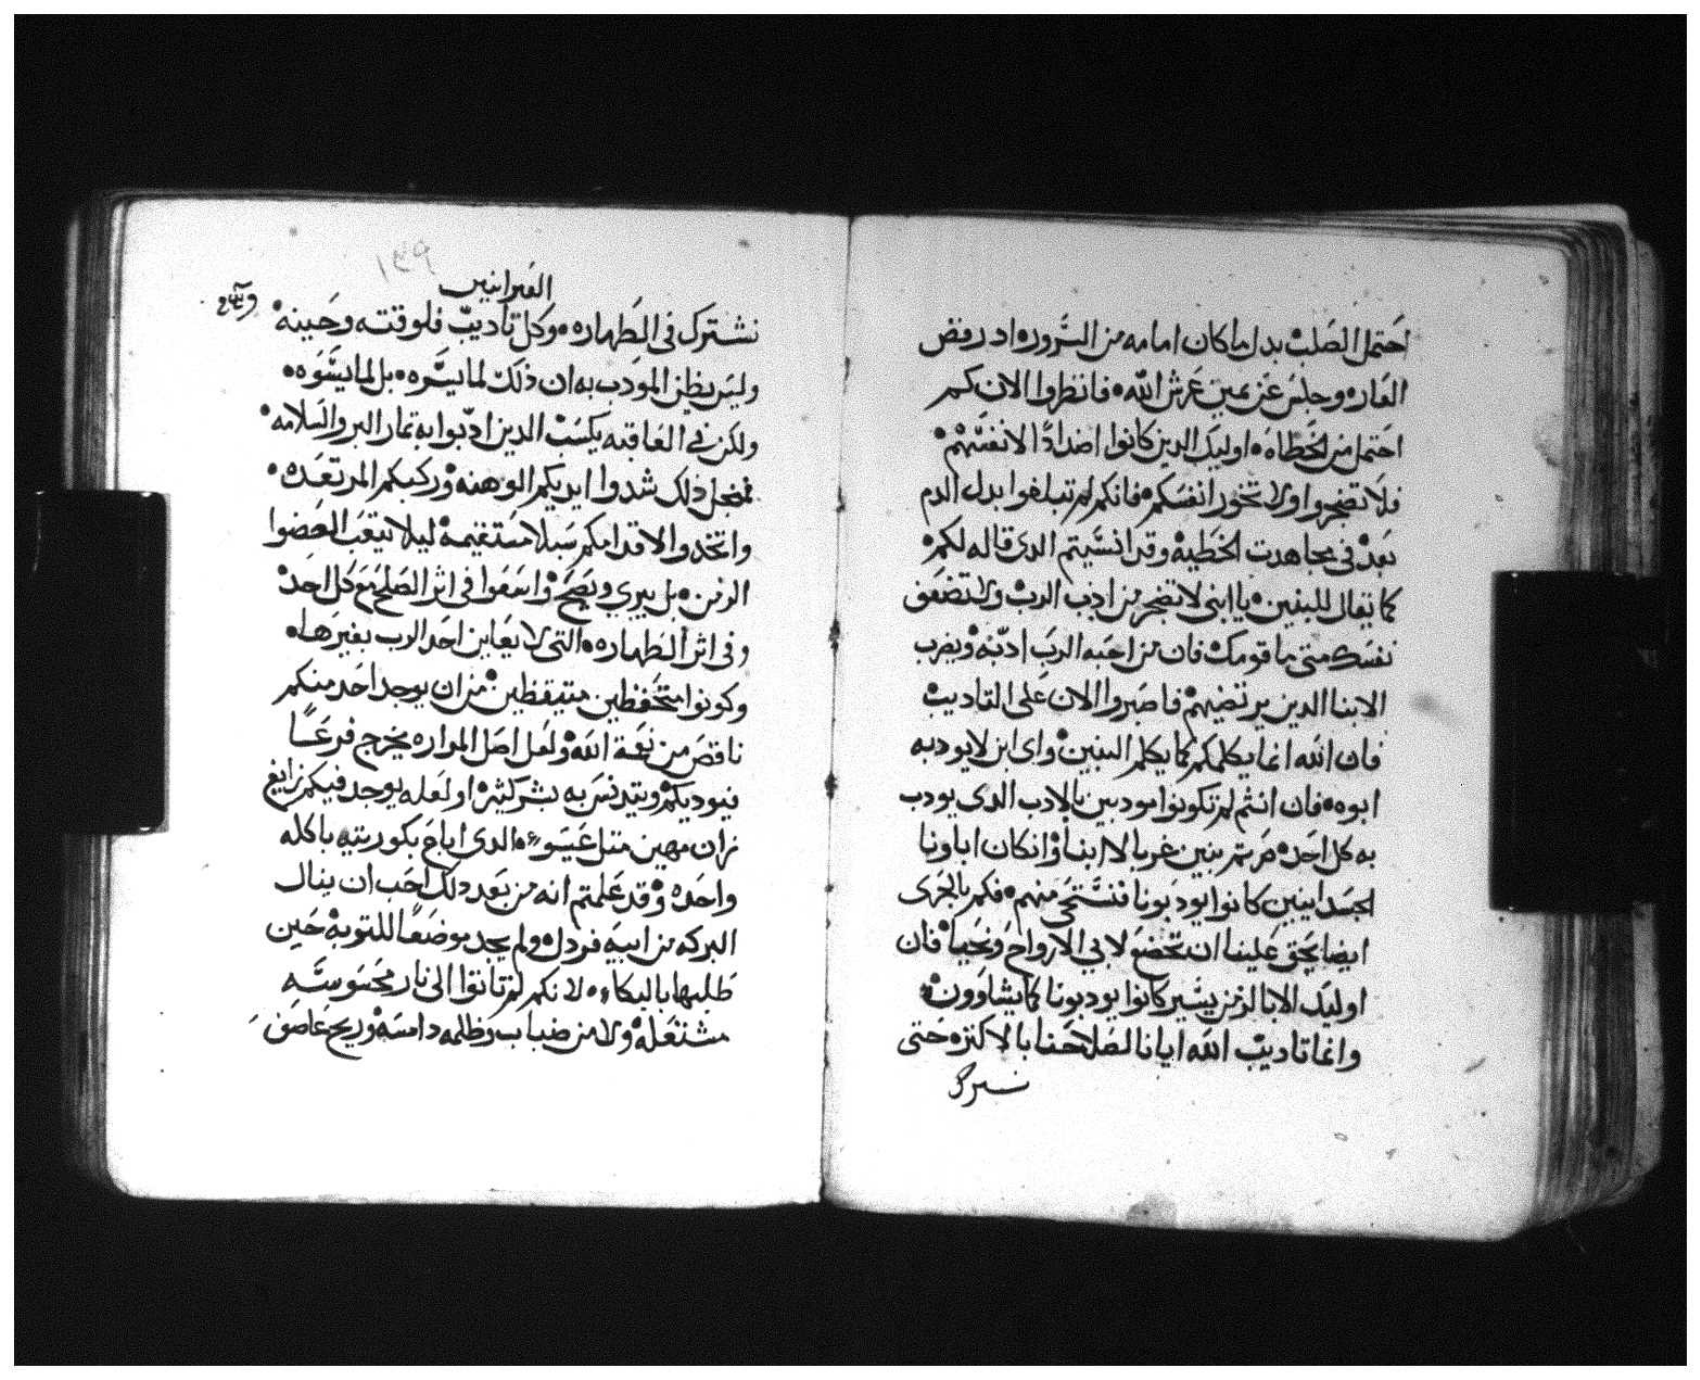 احتمل الصلب بدل ما كان امامه من السرور اد رفض
العار وجلس عن يمين عرش الله فانظروا الان كم
احتمل من الخطاه اوليك الدين كانوا اضدادًا لانفسهم
فلا تضجروا ولا تخور انفسكم فانكم لم تبلغوا بدل الدم
بعد في مجاهدت الخطيه وقد انسيتم الدى قاله لكم
كما يقال للبنين يا ابنى لا تضجر من ادب الرب ولا تضعف
نفسك متى ما قومك فان من احبه الرب ادبه ويضرب
الابنا الدين يرتضيهم فاصبروا الان على التاديب
فان الله انما يكلمكم كما يكلم البنين واى ابن لا يودبه
ابوه فان انتم لم تكونوا مودبين بالادب الدى يودب
به كل احد صرتم بنين غربا لا ابنا وان كان اباونا
الجسدانيين كانوا يودبونا فنستحى منهم فكم بالحرى
ايضا يحق علينا ان نخضع لابي الارواح ونحيا فان
اوليك الابا لزمن يسير كانوا يودبونا كما يشاوون
وانما تاديب الله ايانا لصلاحنا بالاكثر حتى
نشترك
العبرانيين
١٣٩
نشترك فى الطهاره وكل تاديب فلوقته وحينه
وليس يظن المودب به ان ذلك لما يسره بل لما يسوه
ولكن في العاقبه يكسب الدين ادبوا به تمار البر والسلامه
فمنجل ذلك شدوا ايديكم الوهنه وركبكم المرتعده
واتخدوا لاقدامكم سبلا مستقيمة ليلا يتعب العضوا
الزمن بل يبري ويصح واسعوا فى اثر الصلح مع كل احد
وفى اثر الطهاره التى لا يعاين احد الرب بغيرها
وكونوا متحفظين متيقظين من ان يوجد احد منكم
ناقص من نعمة الله ولعل اصل المراره يخرج فرعًا
فيوديكم ويتدنس به بشر كثير او لعله يوجد فيكم زايغ
زان مهين متل عيسو الدى اباع بكوريته باكله
واحده وقد علمتم انه من بعد دلك احب ان ينال
البركه من ابيه فردل ولم يجد موضعًا للتوبة حين
طلبها بالبكاء لانكم لم تاتوا الى نار محسوسه
مشتعله ولا من ضباب وظلمه دامسه وريح عاصف